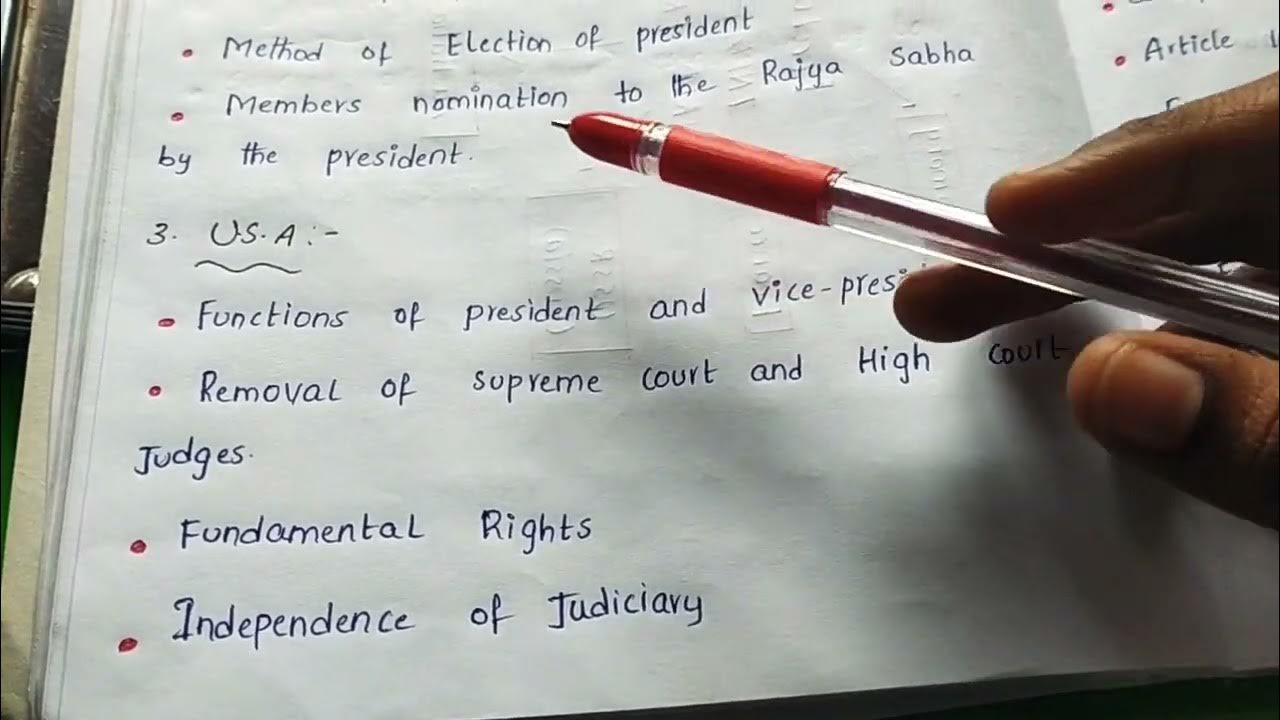 • Method of Election of president
• Members nomination to the Rajya Sabha
by the president.
3. U.S.A :-
• Functions of president and
• Removal of supreme court and High court
Judges.
• Fundamental Rights
• Independence of Judiciary
• Article